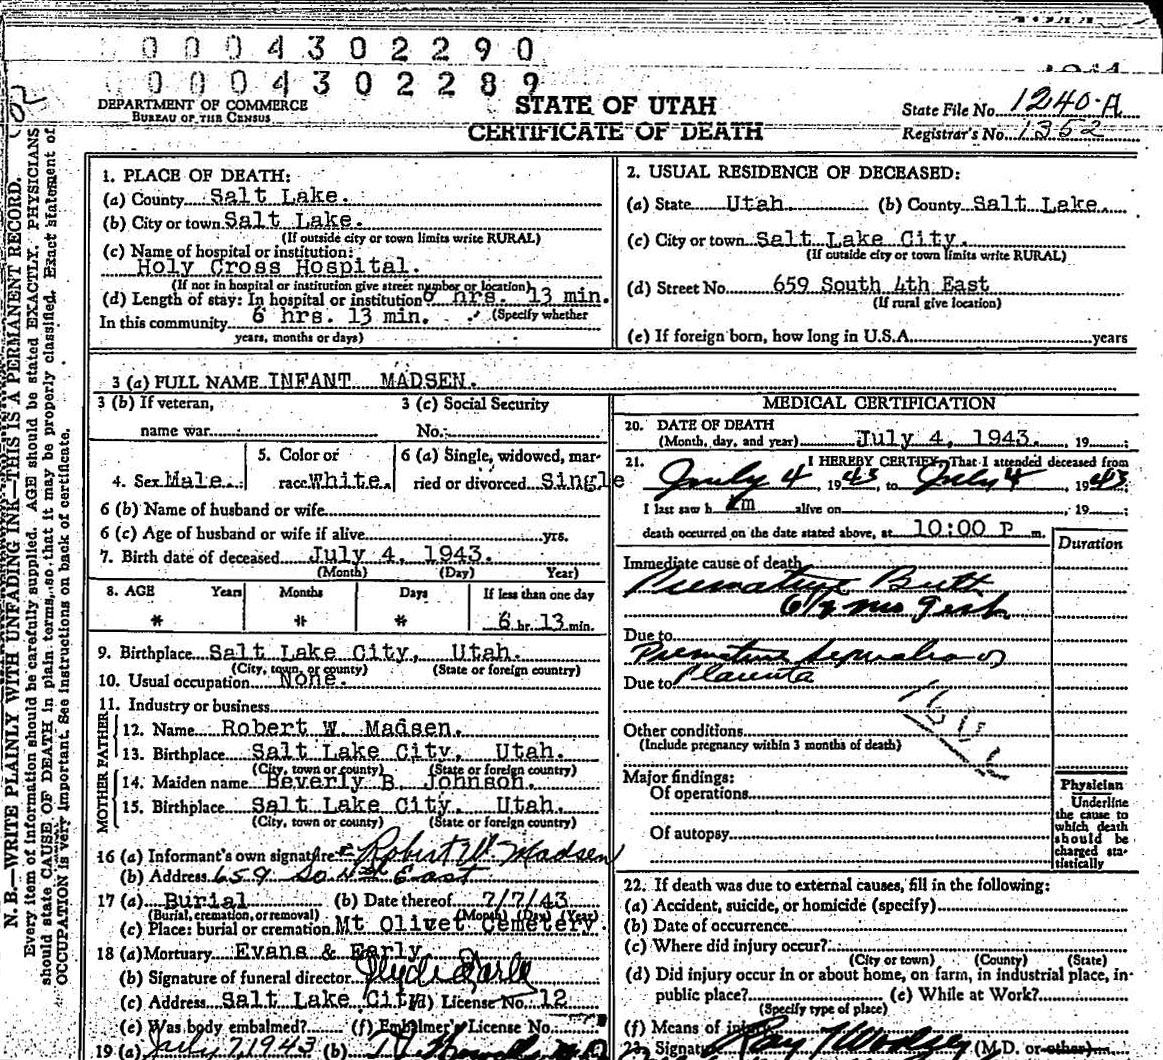 0 0 0 4 3 0 2 2 9 0
0 0 0 4 3 0 2 2 8 9
DEPARTMENT OF COMMERCE
BUREAU OF THE CENSUS
STATE OF UTAH
CERTIFICATE OF DEATH
State File No. 1240-A
Registrar's No. 1352
N. B.—WRITE PLAINLY WITH UNFADING INK—THIS IS A PERMANENT RECORD.
Every item of information should be carefully supplied. AGE should be stated EXACTLY. PHYSICIANS
should state CAUSE OF DEATH in plain terms, so that it may be properly classified. Exact statement of
OCCUPATION is very important. See instructions on back of certificate.
1. PLACE OF DEATH:
(a) County Salt Lake.
(b) City or town Salt Lake.
(If outside city or town limits write RURAL)
(c) Name of hospital or institution:
Holy Cross Hospital.
(If not in hospital or institution give street number or location)
(d) Length of stay: In hospital or institution 6 hrs. 13 min.
(Specify whether
In this community 6 hrs. 13 min.
years, months or days)
2. USUAL RESIDENCE OF DECEASED:
(a) State Utah (b) County Salt Lake.
(c) City or town Salt Lake City.
(If outside city or town limits write RURAL)
(d) Street No. 659 South 4th East
(If rural give location)
(e) If foreign born, how long in U.S.A. years
3 (a) FULL NAME INFANT MADSEN.
3 (b) If veteran,
name war
3 (c) Social Security
No.
4. Sex Male.
5. Color or
race White.
6 (a) Single, widowed, mar-
ried or divorced Single
6 (b) Name of husband or wife
6 (c) Age of husband or wife if alive yrs.
7. Birth date of deceased July 4, 1943.
(Month) (Day) Year)
8. AGE Years Months Days If less than one day
* * * 6 hr. 13 min.
9. Birthplace Salt Lake City, Utah.
(City, town, or county) (State or foreign country)
10. Usual occupation None.
11. Industry or business
FATHER
12. Name Robert W. Madsen.
13. Birthplace Salt Lake City, Utah.
(City, town or county) (State or foreign country)
MOTHER
14. Maiden name Beverly B. Johnson.
15. Birthplace Salt Lake City. Utah.
(City, town or county) (State or foreign country)
16 (a) Informant's own signature Robert W. Madsen
(b) Address 659 So 4th East
17 (a) Burial (b) Date thereof 7/7/43
(Burial, cremation, or removal) (Month) (Day) (Year)
(c) Place: burial or cremation Mt Olivet Cemetery.
18 (a) Mortuary Evans & Early
(b) Signature of funeral director
(c) Address Salt Lake City (d) License No. 12
(e) Was body embalmed? (f) Embalmer's License No.
19 (a) July 7, 1943 (b)
MEDICAL CERTIFICATION
20. DATE OF DEATH
(Month, day, and year) July 4, 1943. 19 ;
21. I HEREBY CERTIFY, That I attended deceased from
July 4, 1943, to July 4 1943;
I last saw h im alive on , 19 ;
death occurred on the date stated above, at 10:00 P m.
Duration
Immediate cause of death
Premature Birth
6 1/2 mo Gest.
Due to
Premature Separation of
Due to Placenta
Other conditions
(Include pregnancy within 3 months of death)
Major findings:
Of operations
Of autopsy
Physician
Underline
the cause to
which death
should be
charged sta-
tistically
22. If death was due to external causes, fill in the following:
(a) Accident, suicide, or homicide (specify)
(b) Date of occurrence
(c) Where did injury occur?
(City or town) (County) (State)
(d) Did injury occur in or about home, on farm, in industrial place, in-
public place? (e) While at Work?
(Specify type of place)
(f) Means of injury
23. Signature Ray T Woolsey (M.D. or other)